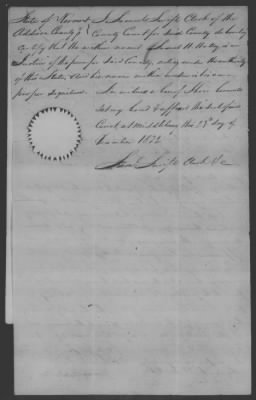 State of Vermont } I Samuel Swift Clerk of the
Addison County } County Court for Said County do hereby
Certify that the within named Samuel H. is a
Justice of the peace for Said County, acting under the authority
of this State, and his name within written is in his
proper Signature. In witness whereof I have hereunto
Set my hand & affixed the Seal of said
Court, at Middlebury this 29th day of
1832
Saml Swift Clerk